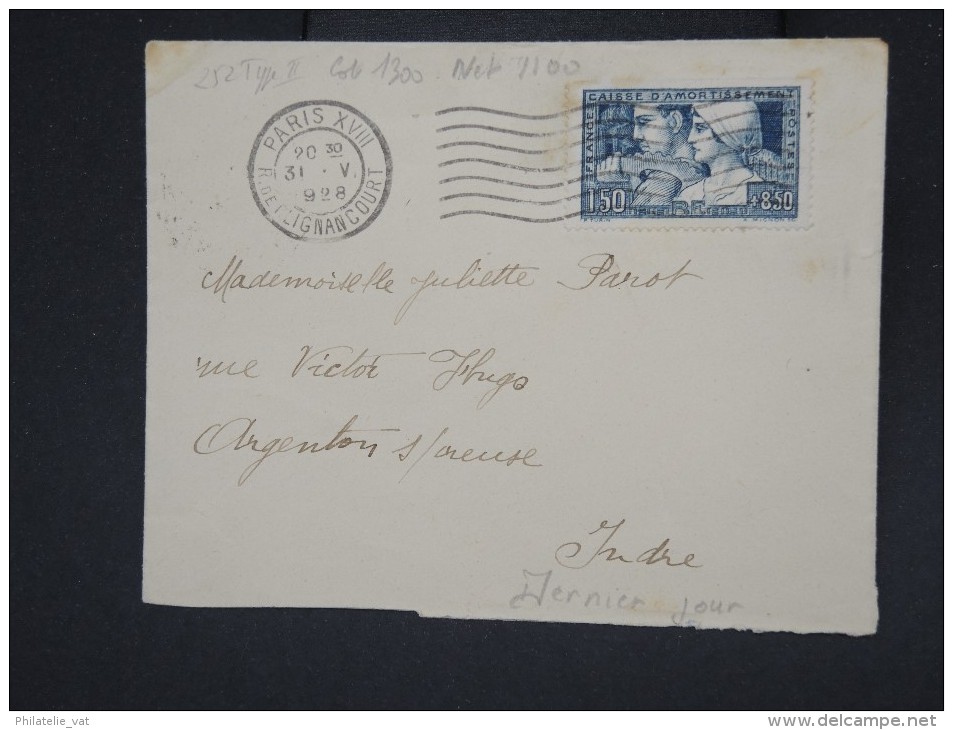 252 Type II Cote 1300 Net 1100
PARIS XVIII
20 30
31 . V.
928
R. DE CLIGNANCOURT
CAISSE D'AMORTISSEMENT
FRANCE
POSTES
1.50
+8.50
Mademoiselle Juliette Parot
rue Victor Hugo
Argenton s/creuse
Indre
Dernier jour
Philatelie_vat
http://www.delcampe.net